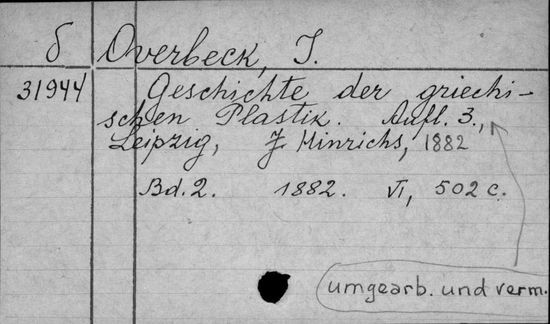 б Overbeck, J.
31944 Geschichte der griechi-
schen Plastik. Aufl. 3.,
Leipzig, J Hinrichs, 1882
Bd. 2. 1882. VI, 502 c.
umgearb. und verm.